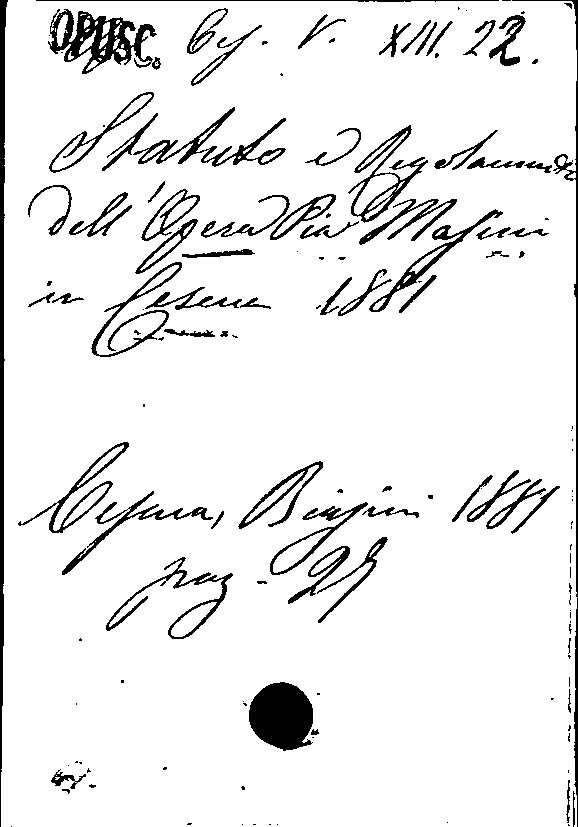 OPUSC. Ces. V. XIII. 22.
Statuto e Regolamento
dell'Opera Pia Masini
in Cesena 1881
Cesena, Biasini 1881
pag - 25